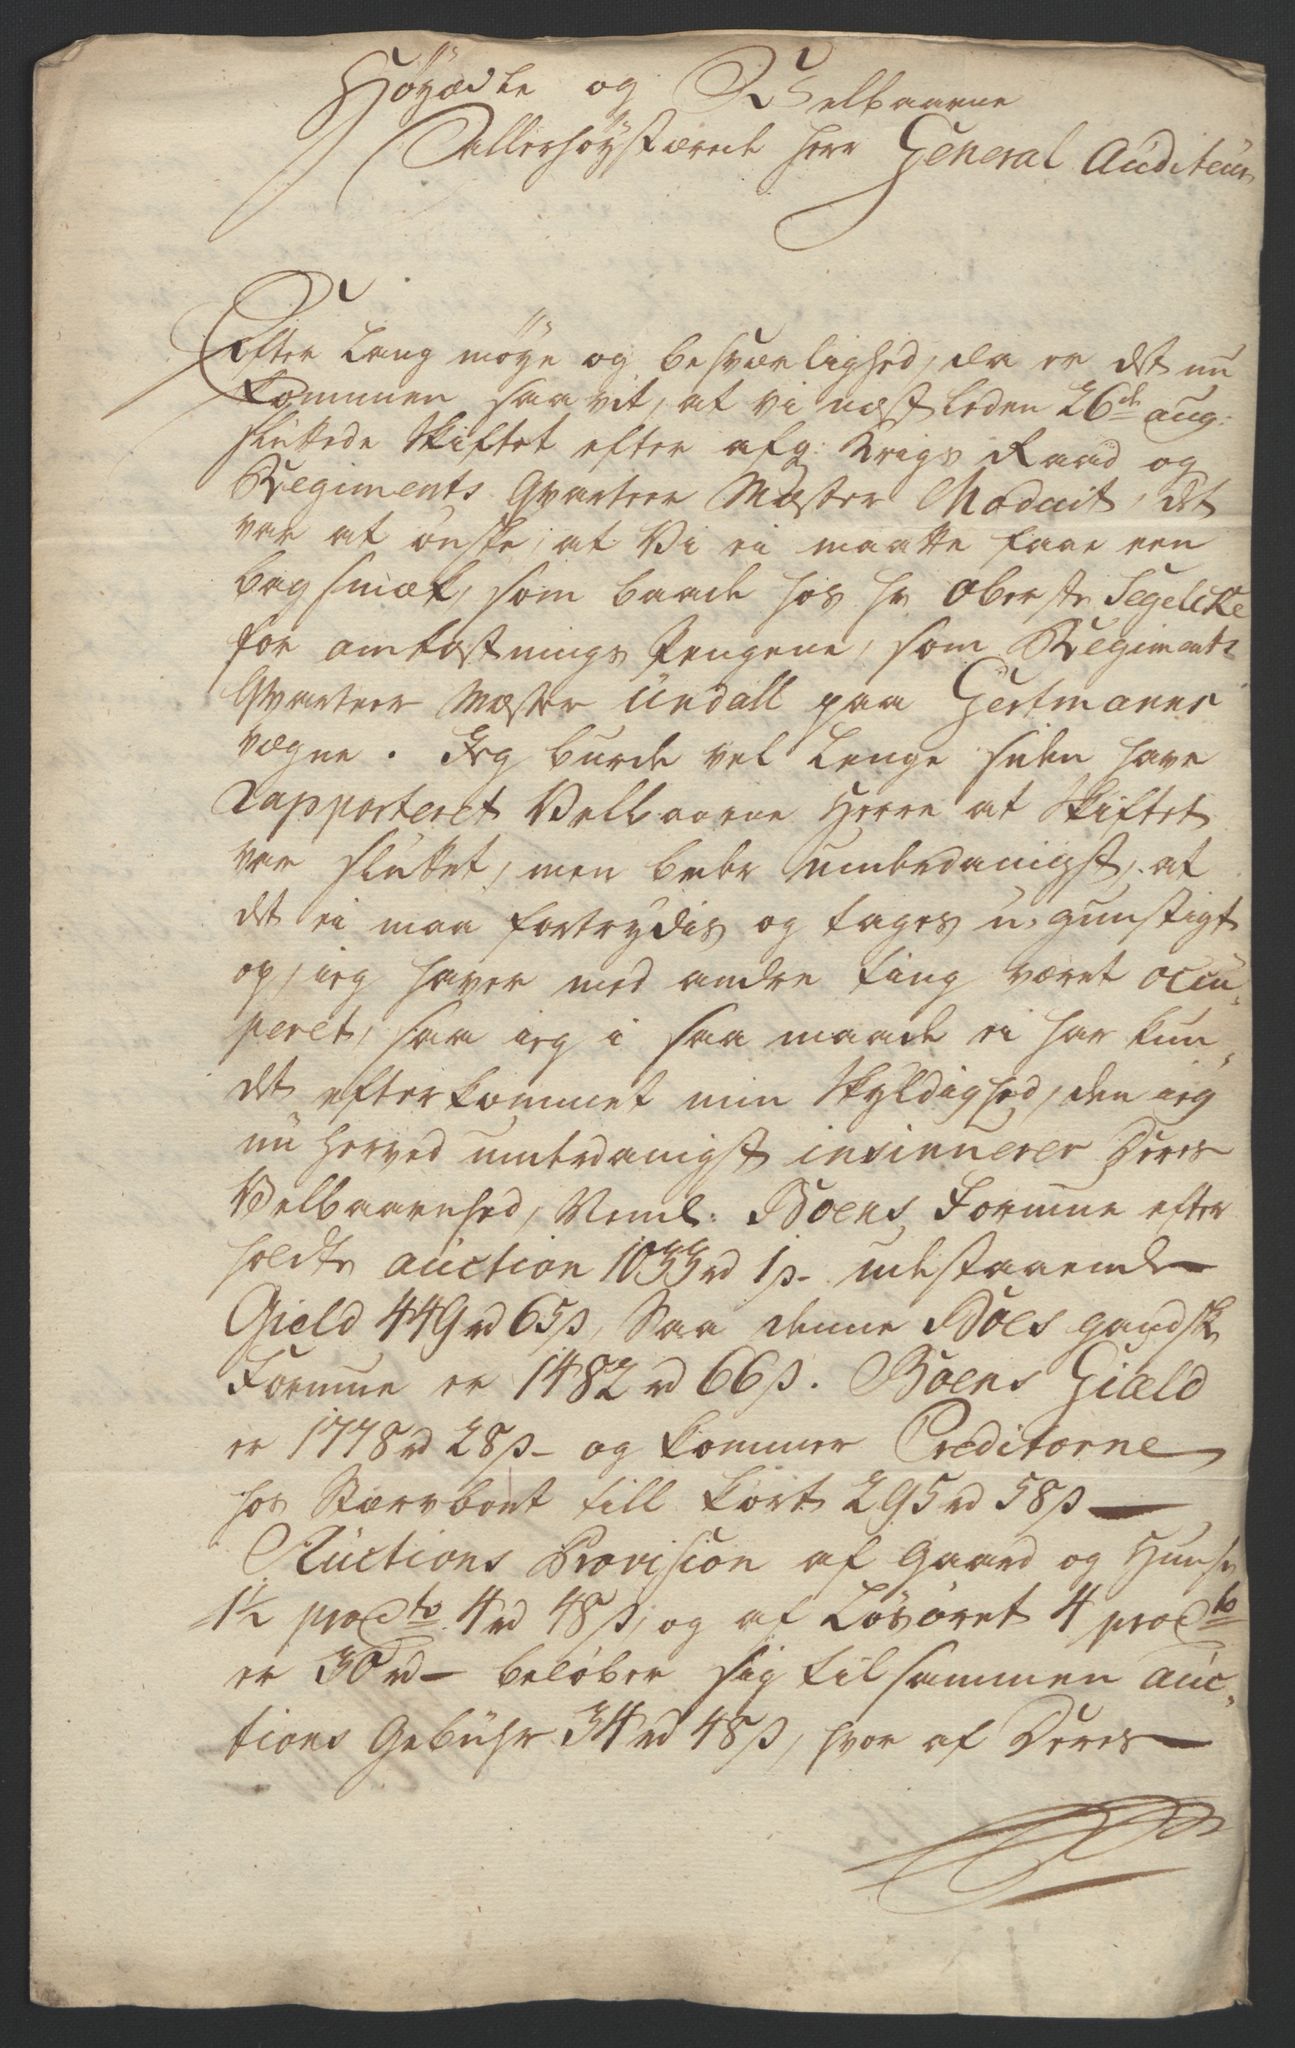 Höÿædle og Velbaarne
Allerhöÿstærede Herr General Auditeur
Efter Lang möÿe og besværlighed, da er det nu
kommen saa vit, at vi næst leden 26de aug:
sluttede Skiftet efter afg: Krigs Raad og
Regiments Qvarteer Mæster Moduit, det
var at önske, at Vi ei maatte faae een
bag smæk, som baade hos Hr Oberste Segelcke
for omkostnings Pengene, som Regiments
Qvarteer Mæster Undall paa Gertmanns
vegne. Jeg burde vel Lenge siden have
Rapporteret Velbaarne Herre at Skiftet
var sluttet, men beder underdanigst, at
det ei maa fortrydis og tages u-gunstigt
op, ieg haver med andre ting været occu-
peret, saa ieg i saa maade ei har kun-
det efterkommet min Skyldighed, den ieg
nu herved underdanigst insinuerer Deres
Velbaarenhed, Neml: Boens Formue efter
holdte auction 1033 rd 1 s- udestaaende
Gield 449 rd 65 s, Saa denne Boes gandske
Formue er 1482 rd 66 s. Boens Giæld
er 1778 rd 28 s- og kommer Creditorne
hos Stervboet till kort 295 rd 58 s
Auctions Provision af Gaard og Huuse
1½ procto 4 rd 48 s, og af Løsøret 4 procto
er 30 rd- beløber sig tilsammen auc-
tions Gebühr 34 rd 48 s, hvor af Deres